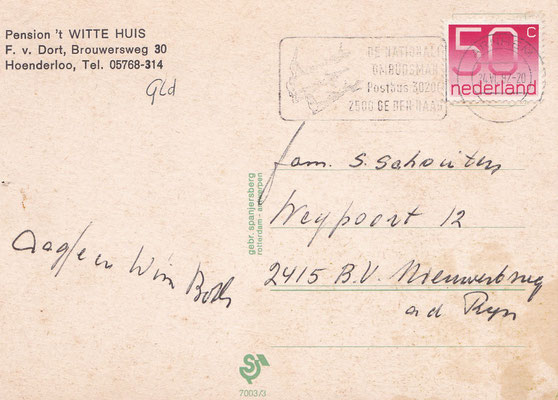 Pension 't WITTE HUIS
F. v. Dort, Brouwersweg 30
Hoenderloo, Tel. 05768-314
Gld
DE NATIONALE
OMBUDSMAN
Postbus 30200
2500 GE DEN HAAG
50 c
nederland
gebr. spanjersberg
rotterdam - antwerpen
fam. S. Schouten
Weypoort 12
2415 B.V. Nieuwerbrug
a d Ryn
en Wim
7003/3